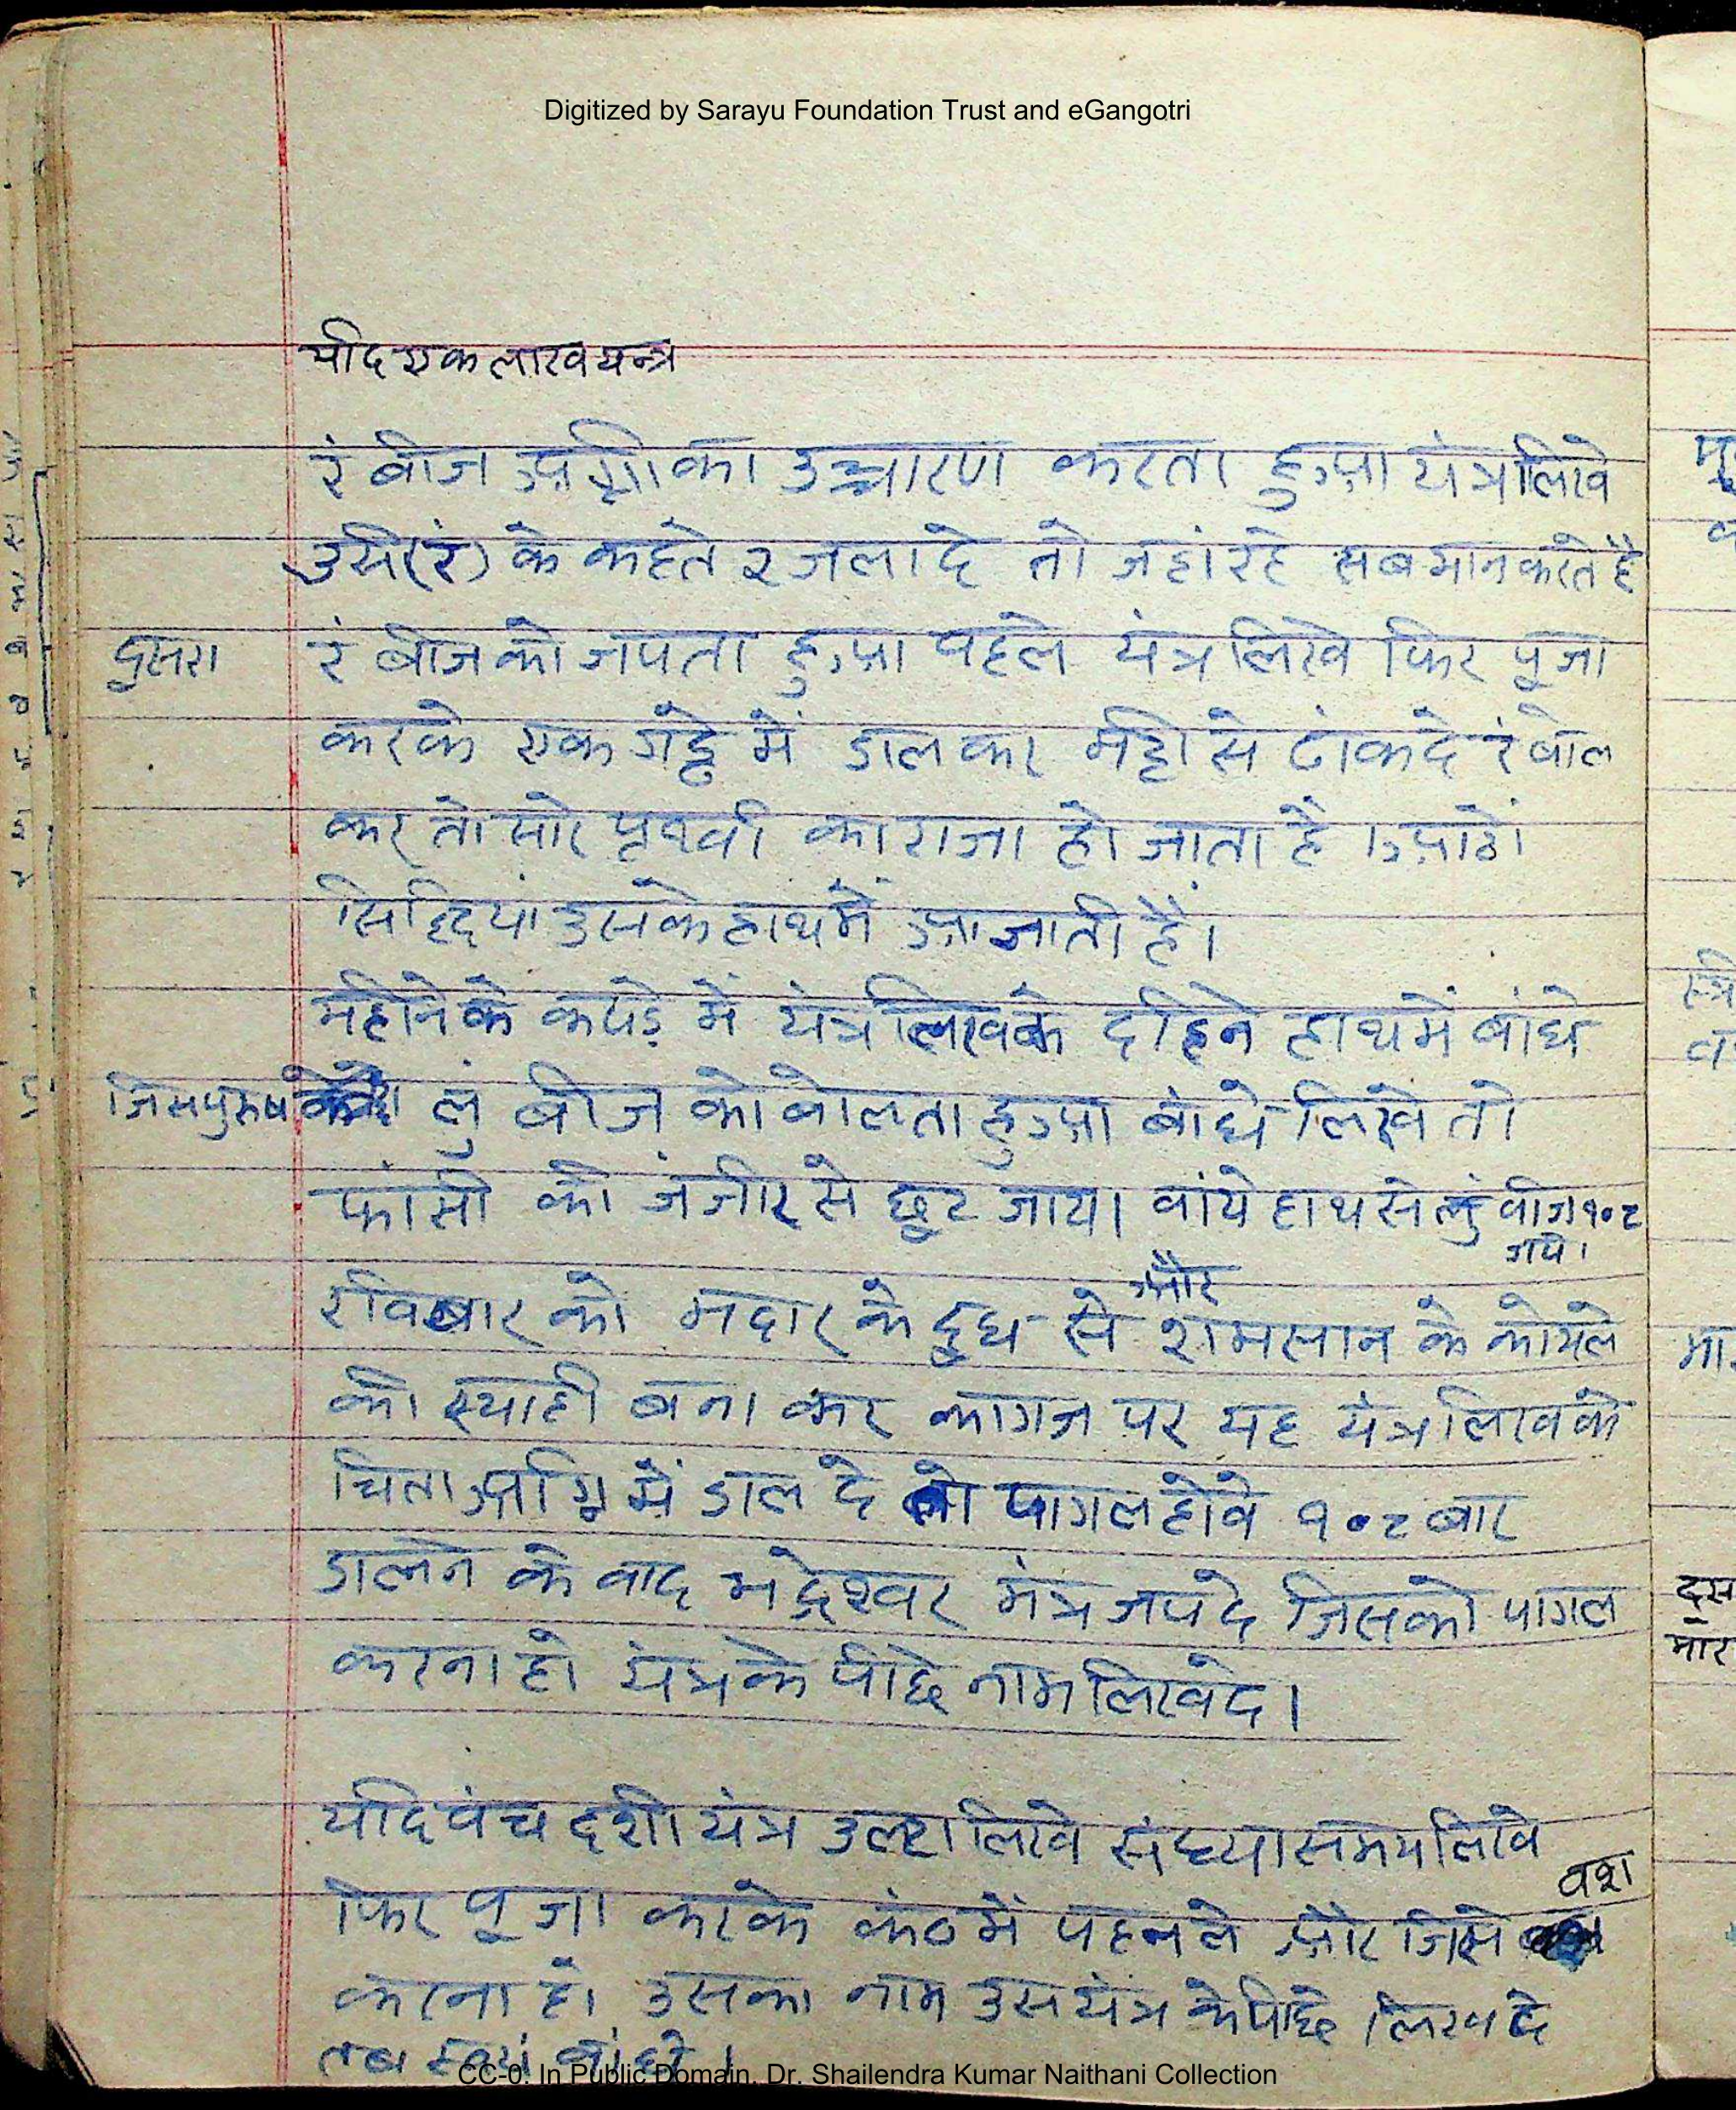 Digitized by Sarayu Foundation Trust and eGangotri
यदि एक लाख यन्त्र
रं बीज अग्नी का उच्चारण करता हुआ यंत्र लिखे
उसे (रं) के कहते २ जला दे तो जहां रहे सब मान करते है
दुसरा रं बीज को जपता हुआ पहले यंत्र लिखे फिर पूजा
करके एक गड्डे में डाल कर मट्टी से ढांक दे रं बोल
कर तो सारे पृथ्वी का राजा हो जाता है। आठों
सिद्दियां उसके हाथ में आ जाती हैं।
महीने के कपड़े में यंत्र लिखके दहिने हाथ में बांधे
जिस पुरुष लुं बीज को बोलता हुआ बांधे लिखे तो
फांसी की जंजीर से छूट जाय। वांये हाथ से लुं वीज १०८
जपे।
और
रविवार को मदार के दूध से शमसान के कोयले
की स्याही बना कर कागज पर यह यंत्र लिख के
चिता अग्नि में डाल दे तो पागल होवे १०८ बार
डालने के वाद भद्रेश्वर मंत्र जप दे जिसको पागल
करना हो यंत्र के पीछे नाम लिख दे।
यदि पंच दशी यंत्र उल्टा लिखे संध्या समय लिखे
वश
फिर पूजा करके कंठ में पहन ले और जिसे
करना हो उसका नाम उस यंत्र के पीछे लिख दे
तब स्वयं बांधे।
CC-0. In Public Domain. Dr. Shailendra Kumar Naithani Collection